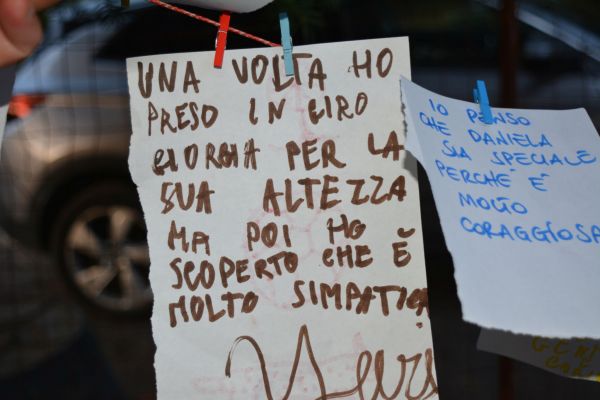 UNA VOLTA HO
PRESO IN GIRO
GIORGIA PER LA
SUA ALTEZZA
MA POI HO
SCOPERTO CHE È
MOLTO SIMPATICA
IO PENSO
CHE DANIELA
SIA SPECIALE
PERCHÉ È
MOLTO
CORAGGIOSA